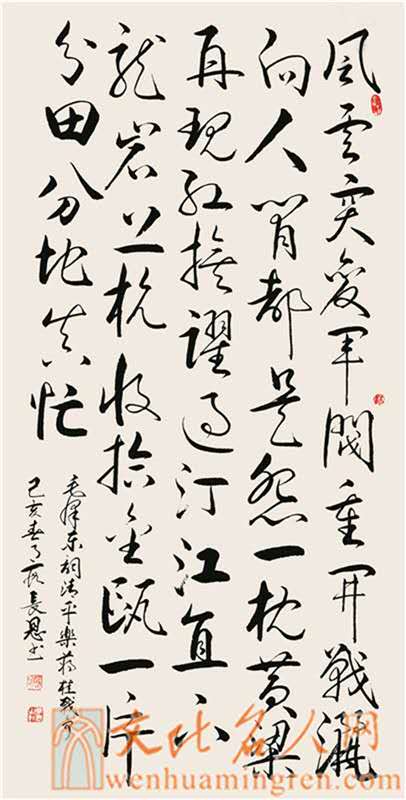 風云突变軍閥重開戰灑
向人間都是怨一枕黄梁
再現紅旗躍過汀江直下
龍岩上杭收拾金甌一片
分田分地真忙
毛澤東詞清平樂蔣桂戰爭
己亥春月長恩書
文化名人网
wenhuamingren.com